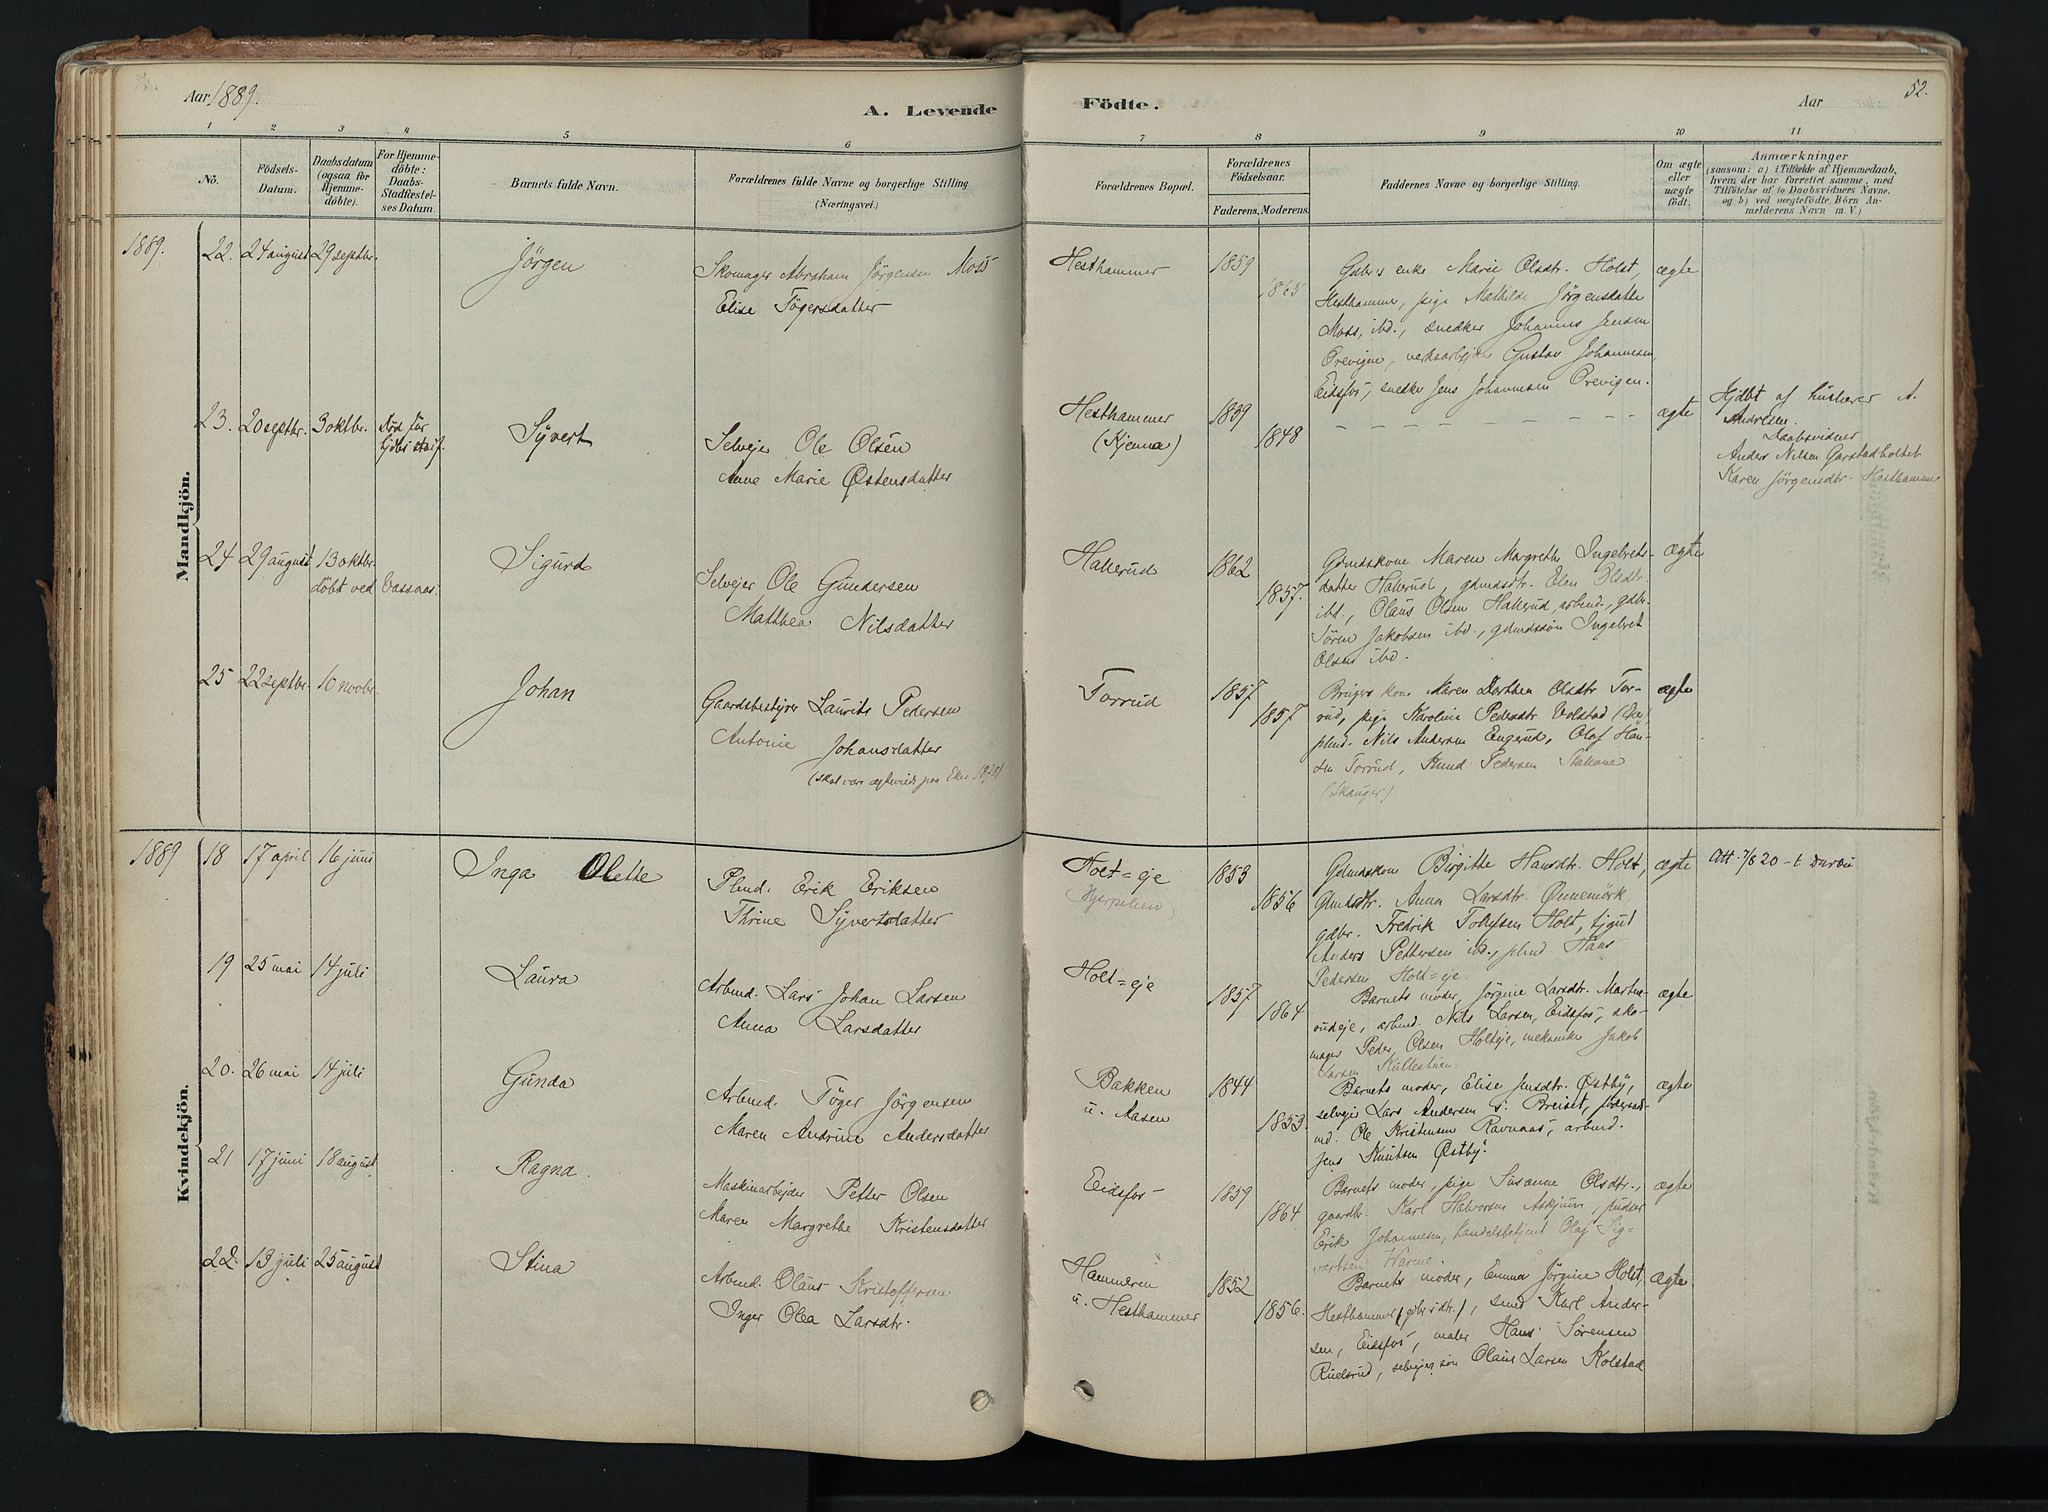 Aar 1889.
A. Levende
Födte.
Aar
52.
1 2 3 4 5 6 7 8 9 10 11
No.
Födsels-
Datum.
Daabsdatum
(ogsaa for
Hjemme-
döbte).
For Hjemme-
döbte:
Daabs-
Stadfæstel-
ses Datum
Barnets fulde Navn.
Forældrenes fulde Navne og borgerlige Stilling
(Næringsvei.)
Forældrenes Bopæl.
Forældrenes
Födselsaar.
Faderens. Moderens.
Faddernes Navne og borgerlige Stilling.
Om ægte
eller
uægte
födt.
Anmærkninger
(saasom: a) i Tilfælde af Hjemmedaab,
hvem der har forrettet samme, med
Tilföielse af to Daabsvidners Navne,
og b) ved uægtefödte Börn An-
melderens Navn m. V.)
Mandkjön.
1889. 22. 24 august 29 septbr.
Jörgen
Skomager Abraham Jörgensen Moss
Elise Tögersdatter
Hesthammer
1859
1865
Gdbrs enke Marie Olsdtr. Holst,
Hesthammer, pige Mathilde Jörgensdatter
Moss, ibd., snedker Johannes Jensen
Orevigen, verksarbejder Gustav Johannesen,
Eidsfos, snedker Jens Johannesen Orevigen.
ægte
23. 20 septbr. 3 oktbr.
Död för
Syvert
Selvejer Ole Olsen
Anne Marie Østensdatter
Hesthammer
(Kjenna)
1839
1848
ægte
Hjdbt af huslærer A.
Andresen.
Daabsvidner
Anders Nilsen Garstadholtet
Karen Jörgensdtr. Hesthammer
24 29 august 13 oktbr.
döbt ved Vassaas.
Sigurd
Selvejer Ole Gundersen
Matthea Nilsdatter
Hallerud
1862
1857.
Gdmdskone Maren Margrethe Ingebrets-
datter Hallerud, gdmdsdtr. Elen Olsdtr.
ibd., Olaus Olsen Hallerud, arbmd., gdbr.
Sören Jakobsen ibd., gdmdssön Ingebret
Olsen ibd.
ægte
25 22 septbr. 10 novbr.
Johan
Gaardsbestyrer Laurits Pedersen
Antonie Johansdatter
Torrud
1857
1857
Brugers kone Maren Dorthea Olsdtr Tor-
rud, pige Karoline Pedersdtr Volstad (Eker)
plmd. Nils Andersen Engerud, Olaf Han-
sen Torrud, Knud Pedersen Stakane
(Skauger)
ægte
Kvindekjön.
1889 18 17 april 16 juni
Inga Olette
Plmd. Erik Eriksen
Thrine Syvertsdatter
Holt=eje
(Hjerpehen)
1853
1856
Gdmdskone Birgitte Hansdtr. Holt,
Gdmdsdtr. Anna Larsdtr. Önnemörk,
gdbr. Fredrik Tollefsen Holt, tjgut
Anders Pettersen ibd., plmd Hans
Pedersen Holt=eje.
ægte
Att. 7/8 20
19 25 mai 14 juli
Laura
Arbmd. Lars Johan Larsen
Anna Larsdatter
Holt=eje
1857
1864
Barnets moder, Jörgine Larsdtr. Martins-
rudeje, arbmd. Nils Larsen, Eidsfos, sko-
mager Peder Olsen Holteje, mekaniker Jakob
Larsen Kullestuen.
ægte
20. 26 mai 14 juli
Gunda
Arbmd. Töger Jörgensen
Maren Andrine Andersdatter
Bakken
u. Aasen
1844
1853.
Barnets moder, Elise Jensdtr. Østby,
selvejer Lars Andersen s: Breiset, föderaads-
md. Ole Kristensen Ravnaas, arbmd.
Jens Knutsen Østby.
ægte
21 17 juni 18 august
Ragna.
Maskinarbejder Petter Olsen
Maren Margrethe Kristensdatter
Eidsfos
1859
1864
Barnets moder, pige Susanne Olsdtr.,
gaardbr. Karl Halvorsen Askjum, pudser
Erik Johannesen, handelsbetjent Olaf Sig-
vartsen Harne.
ægte
22. 13 juli 25 august
Stina
Arbmd. Olaus Kristoffersen
Inger Olea Larsdtr.
Hammeren
u. Hesthammer
1852
1856.
Barnets moder, Emma Jörgine Holst,
Hesthammer (gdbrsdtr.), smed Karl Ander-
sen, Eidsfos, maler Hans Sörensen
Ruelsrud, selvejersön Olaus Larsen Kolstad
ægte